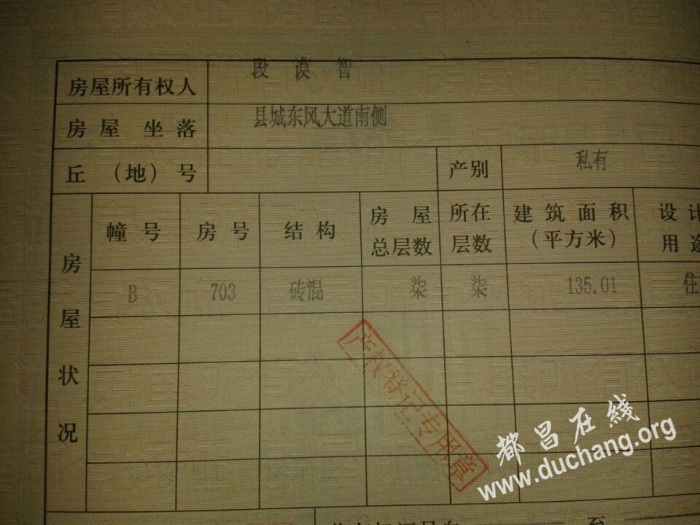 房屋所有权人 段漠智
房屋坐落 县城东风大道南侧
丘（地）号 产别 私有
房屋状况
幢号 房号 结构 房屋总层数 所在层数 建筑面积（平方米） 设计用途
B 703 砖混 柒 柒 135.01 住
产权登记专用章
都昌在线
www.duchang.org